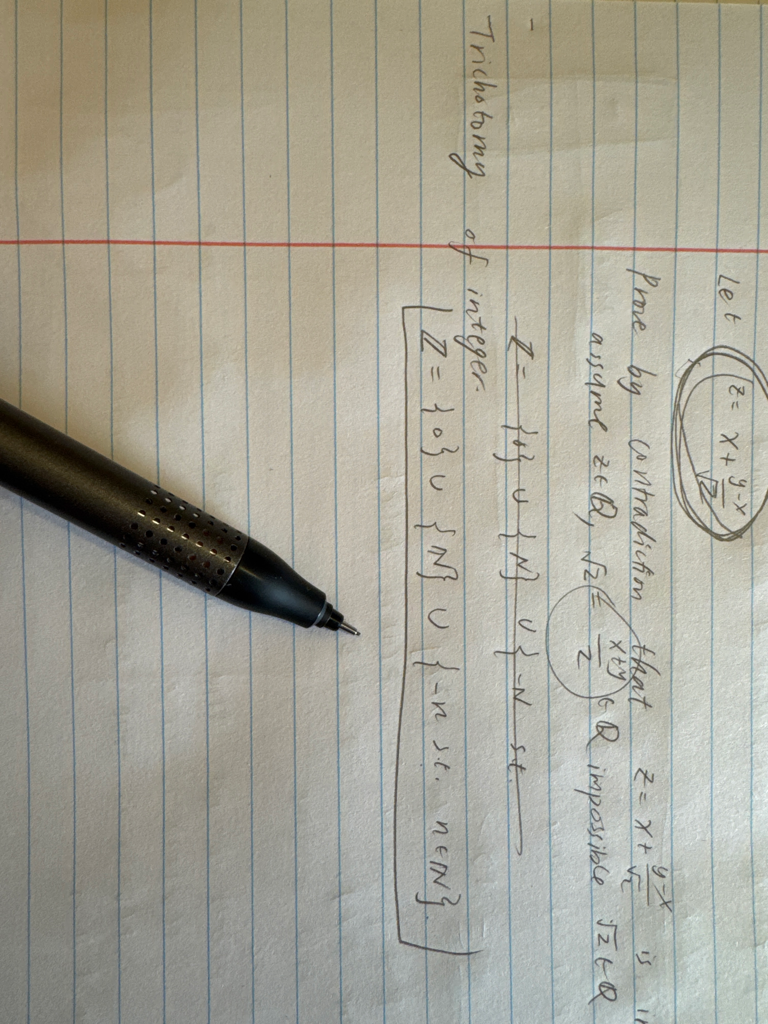 Let z = x + y-x/√2
Prove by contradiction that z = x + y-x/√2 is
assume z ∈ Q, √2 = x+y/2 ∈ Q impossible √2 ∈ Q
Z = {0} ∪ {N} ∪ {-N s.t.
Trichotomy of integer.
Z = {0} ∪ {N} ∪ {-n s.t. n ∈ N}.